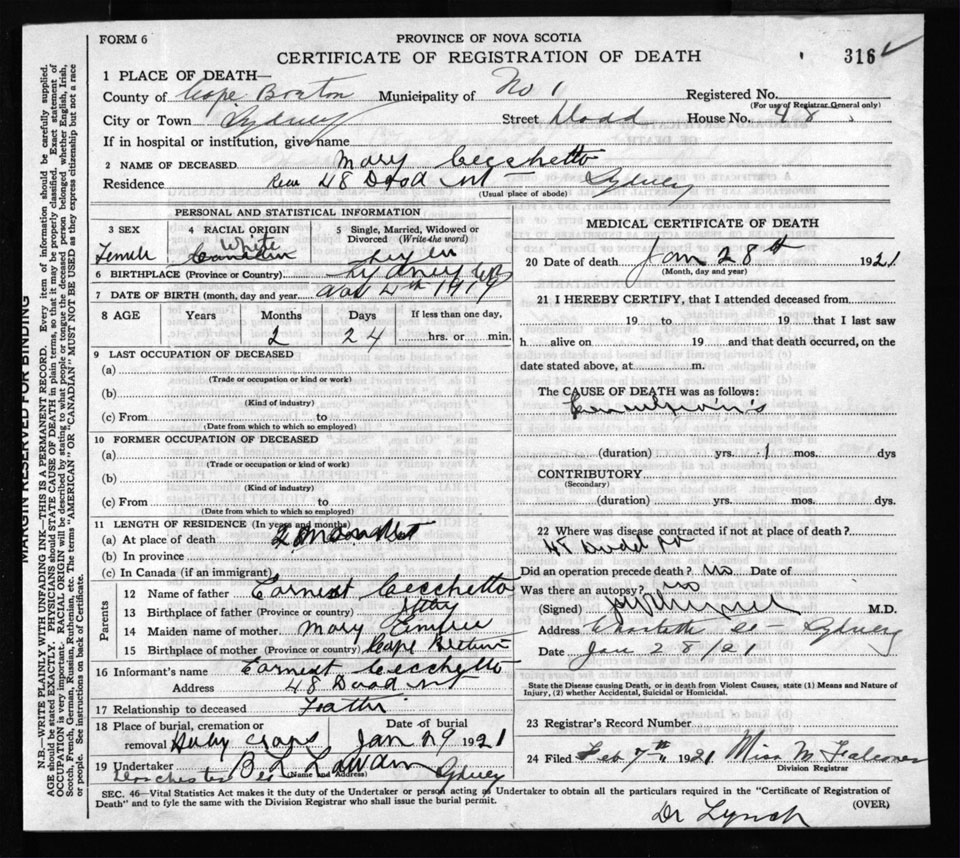 FORM 6
PROVINCE OF NOVA SCOTIA
CERTIFICATE OF REGISTRATION OF DEATH
316
1 PLACE OF DEATH—
County of Cape Breton Municipality of No 1 Registered No.
(For use of Registrar General only)
City or Town Sydney Street Dodd House No. 48
If in hospital or institution, give name
2 NAME OF DECEASED Mary Cecchetto
Residence 48 Dodd St Sydney
(Usual place of abode)
PERSONAL AND STATISTICAL INFORMATION
3 SEX
Female
4 RACIAL ORIGIN
White
Canadian
5 Single, Married, Widowed or
Divorced (Write the word)
6 BIRTHPLACE (Province or Country) Sydney CB
7 DATE OF BIRTH (month, day and year) Nov 4th 1919
8 AGE Years Months Days If less than one day,
2 24 hrs. or min.
9 LAST OCCUPATION OF DECEASED
(a)
(Trade or occupation or kind or work)
(b)
(Kind of industry)
(c) From to
(Date from which to which so employed)
10 FORMER OCCUPATION OF DECEASED
(a)
(Trade or occupation or kind of work)
(b)
(Kind of industry)
(c) From to
(Date from which to which so employed)
11 LENGTH OF RESIDENCE (In years and months)
(a) At place of death
(b) In province
(c) In Canada (if an immigrant)
Parents
12 Name of father Earnest Cecchetto
13 Birthplace of father (Province or country) Italy
14 Maiden name of mother Mary
15 Birthplace of mother (Province or country) Cape Breton
16 Informant's name Earnest Cecchetto
Address 48 Dodd St
17 Relationship to deceased Father
18 Place of burial, cremation or
removal Holy Cross
Date of burial
Jan 29 1921
19 Undertaker
(Name and Address)
Dorchester St Sydney
MEDICAL CERTIFICATE OF DEATH
20 Date of death Jan 28th 1921
(Month, day and year)
21 I HEREBY CERTIFY, that I attended deceased from
19 to 19 that I last saw
h alive on 19 and that death occurred, on the
date stated above, at m.
The CAUSE OF DEATH was as follows:
(duration) yrs. 1 mos. dys
CONTRIBUTORY
(Secondary)
(duration) yrs. mos. dys.
22 Where was disease contracted if not at place of death?
48 Dodd St
Did an operation precede death? no Date of
Was there an autopsy? no
(Signed) M.D.
Address Charlotte St — Sydney
Date Jan 28/21
State the Disease causing Death, or in death from Violent Causes, state (1) Means and Nature of
Injury, (2) whether Accidental, Suicidal or Homicidal.
23 Registrar's Record Number
24 Filed Feb 7th 1921 Miss M
Division Registrar
SEC. 46—Vital Statistics Act makes it the duty of the Undertaker or person acting as Undertaker to obtain all the particulars required in the "Certificate of Registration of
Death" and to fyle the same with the Division Registrar who shall issue the burial permit.
(OVER)
Dr Lynch
MARGIN RESERVED FOR BINDING
N.B.—WRITE PLAINLY WITH UNFADING INK—THIS IS A PERMANENT RECORD. Every item of information should be carefully supplied.
AGE should be stated EXACTLY. PHYSICIANS should STATE CAUSE OF DEATH in plain terms, so that it may be properly classified. Exact statement of
OCCUPATION is very important. RACIAL ORIGIN will be described by stating to what people or tongue the deceased person belonged whether English, Irish,
Scotch, French, German, Russian, Ruthenian, etc. The terms "AMERICAN" OR "CANADIAN" MUST NOT BE USED as they express citizenship but not a race
or people. See instructions on back of Certificate.